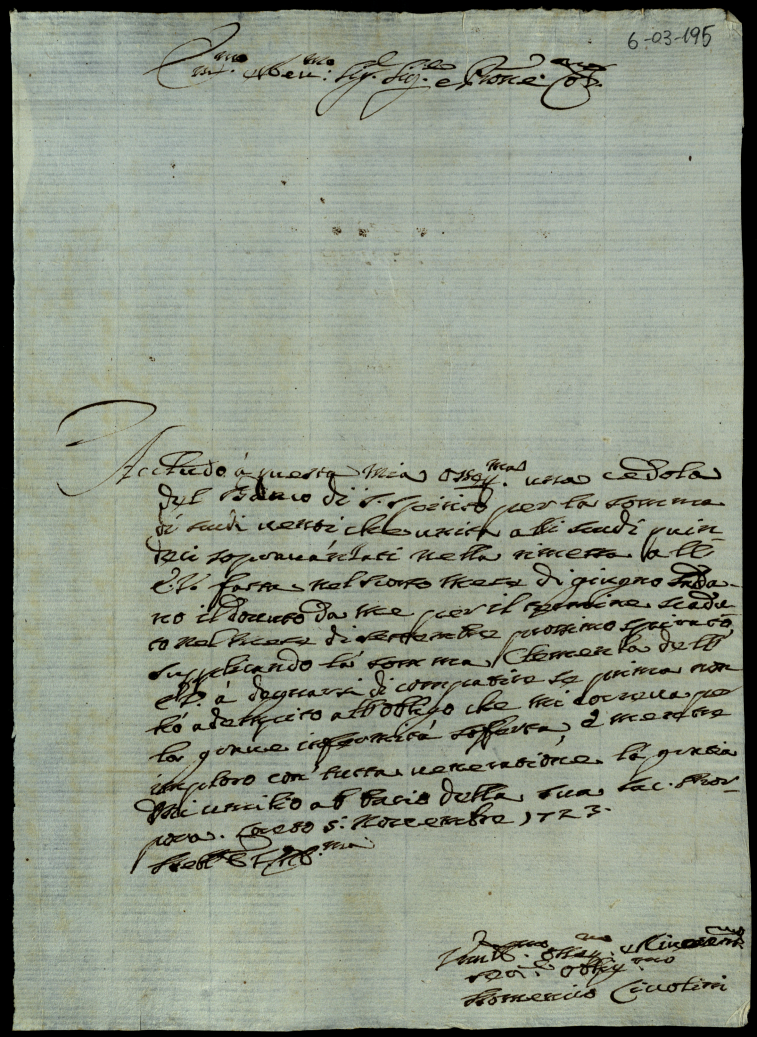 6-03-195
Em.mo e Rev.mo Sig.r Sig.re e Prone Col.mo
Accludo à questa mia osseq.ma una cedola
del Banco di S. Spirito per la somma
di scudi venti che unita alli scudi quin-
deci sopravanzati nella rimessa all'
E.V. fatta nel mese di giugno salda-
no il dovuto da me per il termine scadu-
to nel mese di settembre prossimo spirato
supplicando la somma Clemenza dell'
E.V. à degnarsi di compatire se prima non
hò adempito all'obligo che mi correva per
la grave infermità sofferta, e mentre
imploro con tutta venerazione la grazia
mi umilio al bacio della sua sac. Por-
pora. 5. Novembre 1723.
Dell' E.V. R.ma
Um.mo Oss.mo Riverent.mo
ser.e Oblig.mo
Domenico Civolini